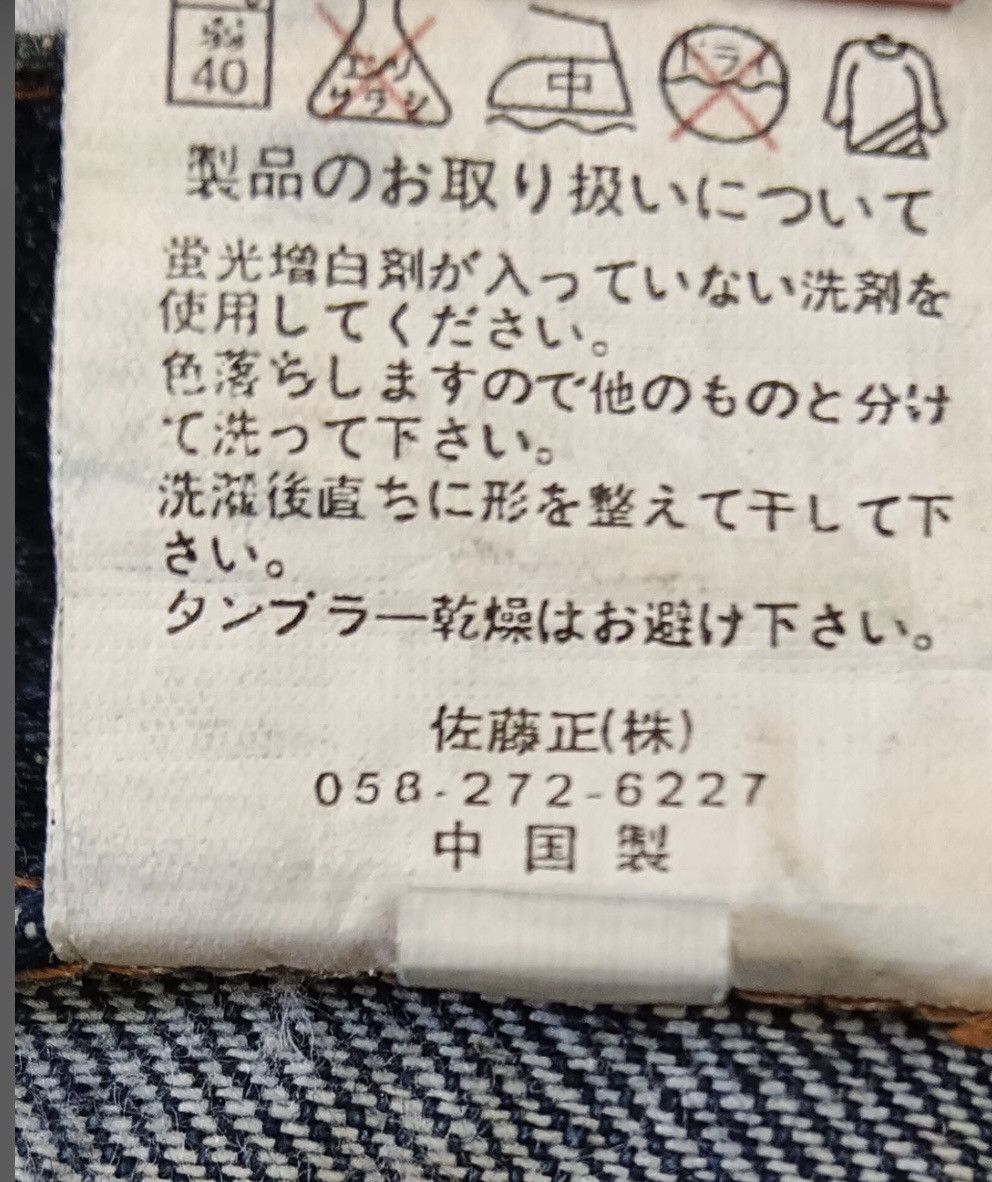 弱
40
エンソ
サラシ
中
ドライ
製品のお取り扱いについて
蛍光増白剤が入っていない洗剤を
使用してください。
色落ちしますので他のものと分け
て洗って下さい。
洗濯後直ちに形を整えて干して下
さい。
タンブラー乾燥はお避け下さい。
佐藤正(株)
058-272-6227
中国製